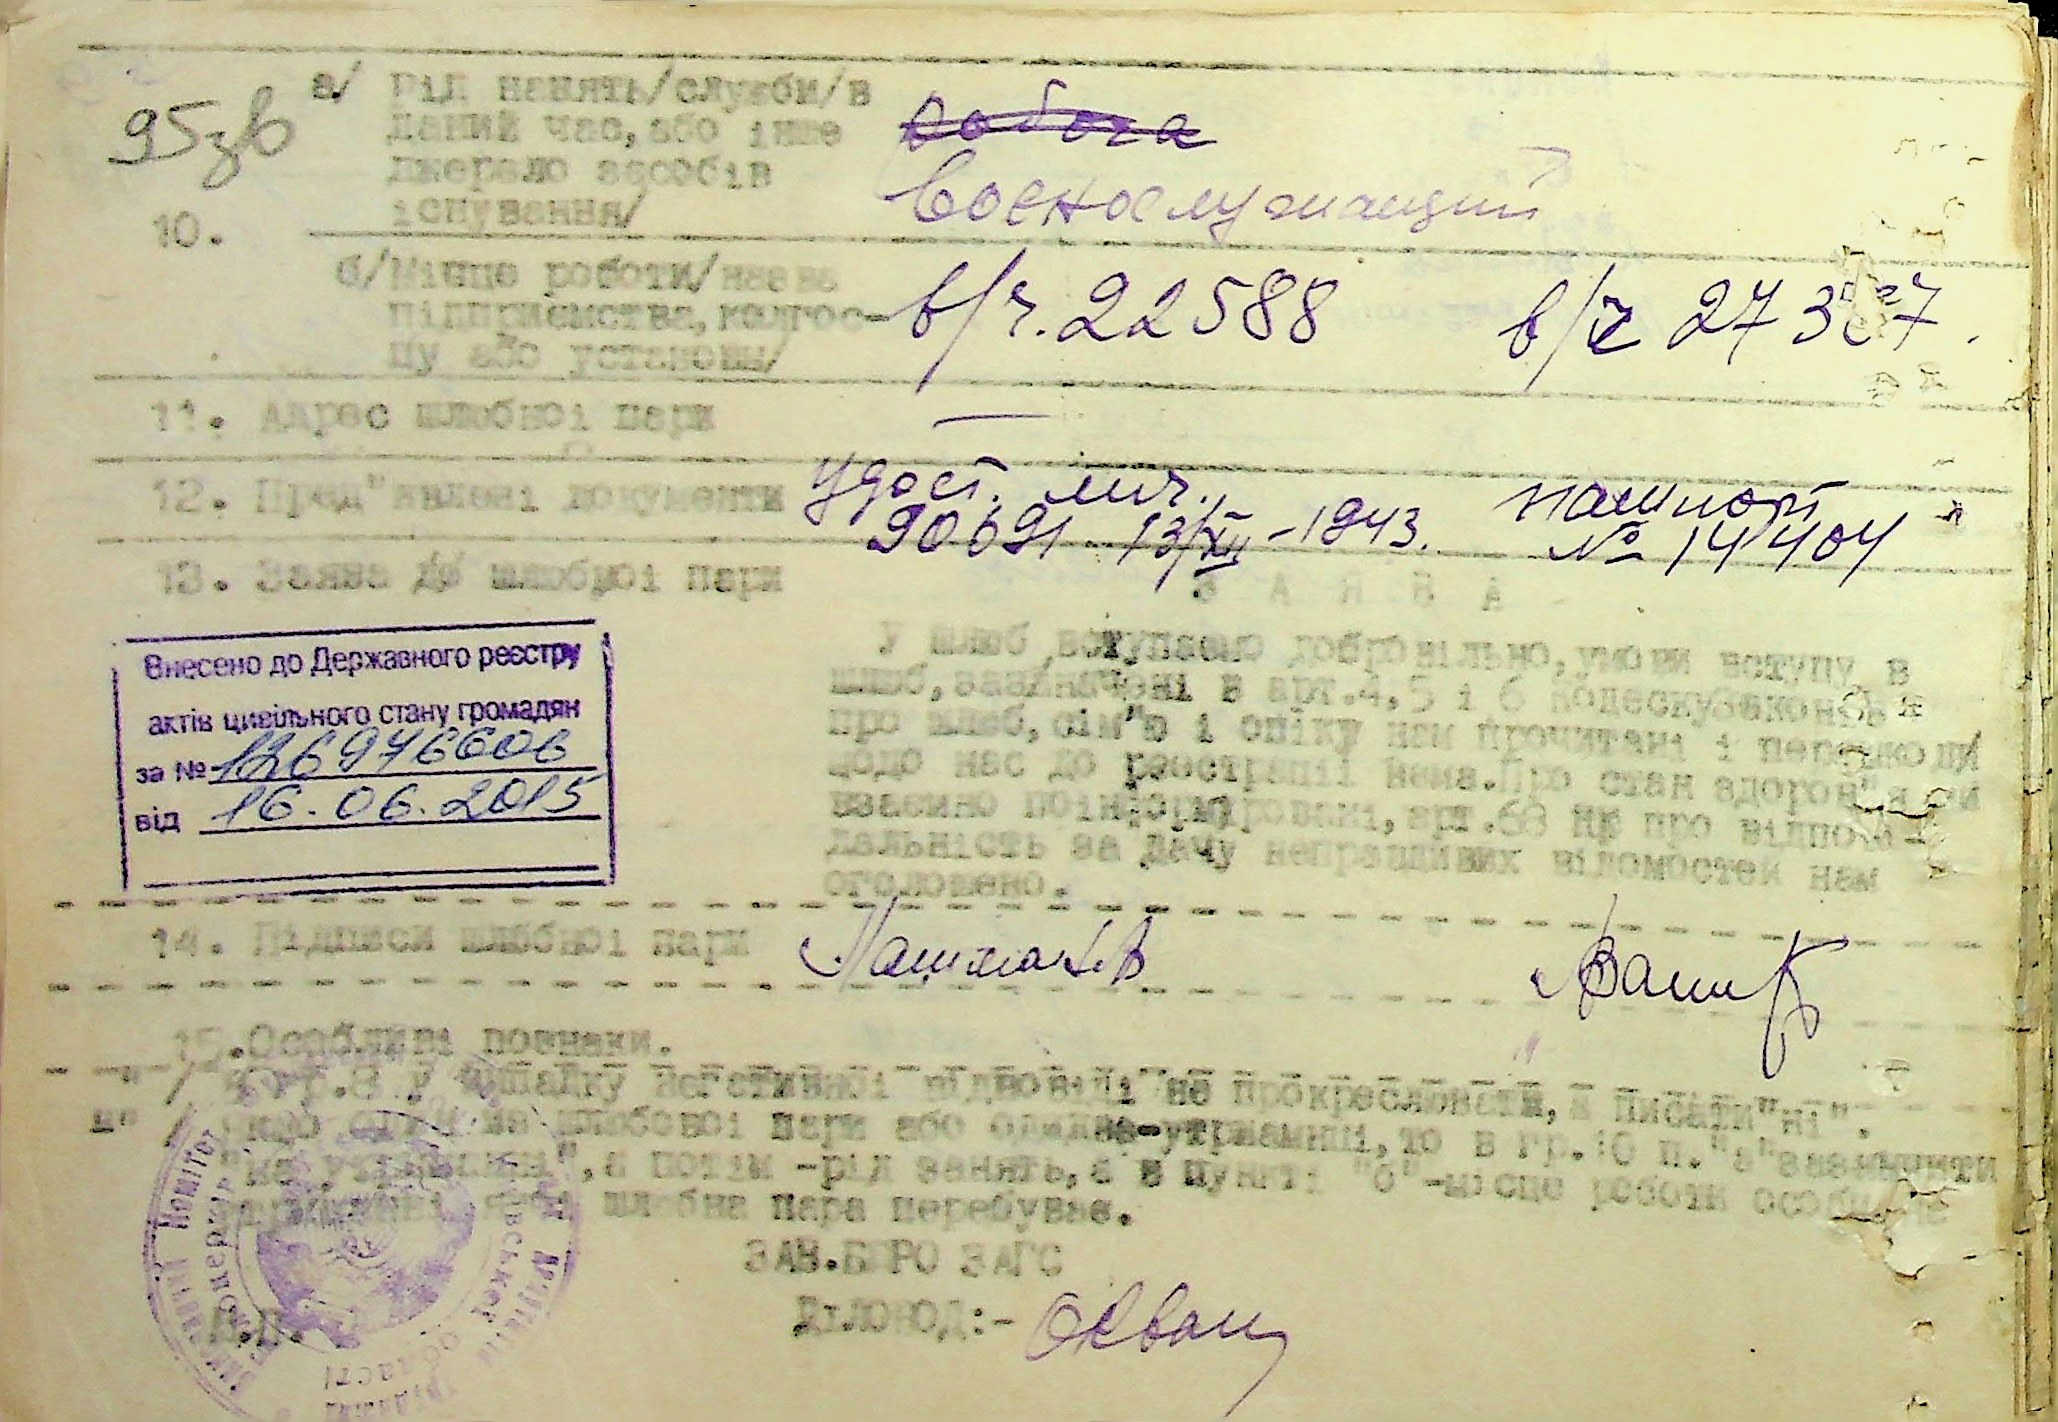 95зв
а/ Рід занять/служби/в
даний час, або інше
джерело засобів
існування/
робоча
Военослужащий
10.
б/Місце роботи/назва
підприємства, колгос-
пу або установи/
в/ч. 22588
в/ч 27
11. Адрес шлюбної пари
—
12. Пред"явлені документи
Удост. лич.
90691 13/XII - 1943.
пашпорт
№ 14404
13. Заява до шлюбної пари
З А Я В А
У шлюб вступаємо добровільно, умови вступу в
шлюб, зазначені в арт.4,5 і 6 кодексу законів
про шлюб, сім"ю і опіку нам прочитані і перешкоди
щодо нас до реєстрації нема. Про стан здоров"я ми
взаємно поінформовані, арт.68 КК про відпові-
дальність за дачу неправдивих відомостей нам
оголошено.
Внесено до Державного реєстру
актів цивільного стану громадян
за № 126976606
від 16.06.2015
14. Підписи шлюбної пари
15. Особливі познаки.
у випадку негативної відповіді не прокреслювати, а писати "ні".
шлюбової пари або на утриманні, то в гр.10 п."а" зазначити
"на утриманні", а потім - рід занять, а в пункті "б" - місце роботи особи
шлюбна пара перебуває.
ЗАВ.БЮРО ЗАГС
ДІЛОВОД:-